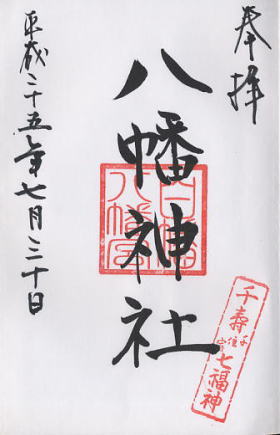 奉拝
八幡神社
平成二十五年七月三十日
千寿七福神